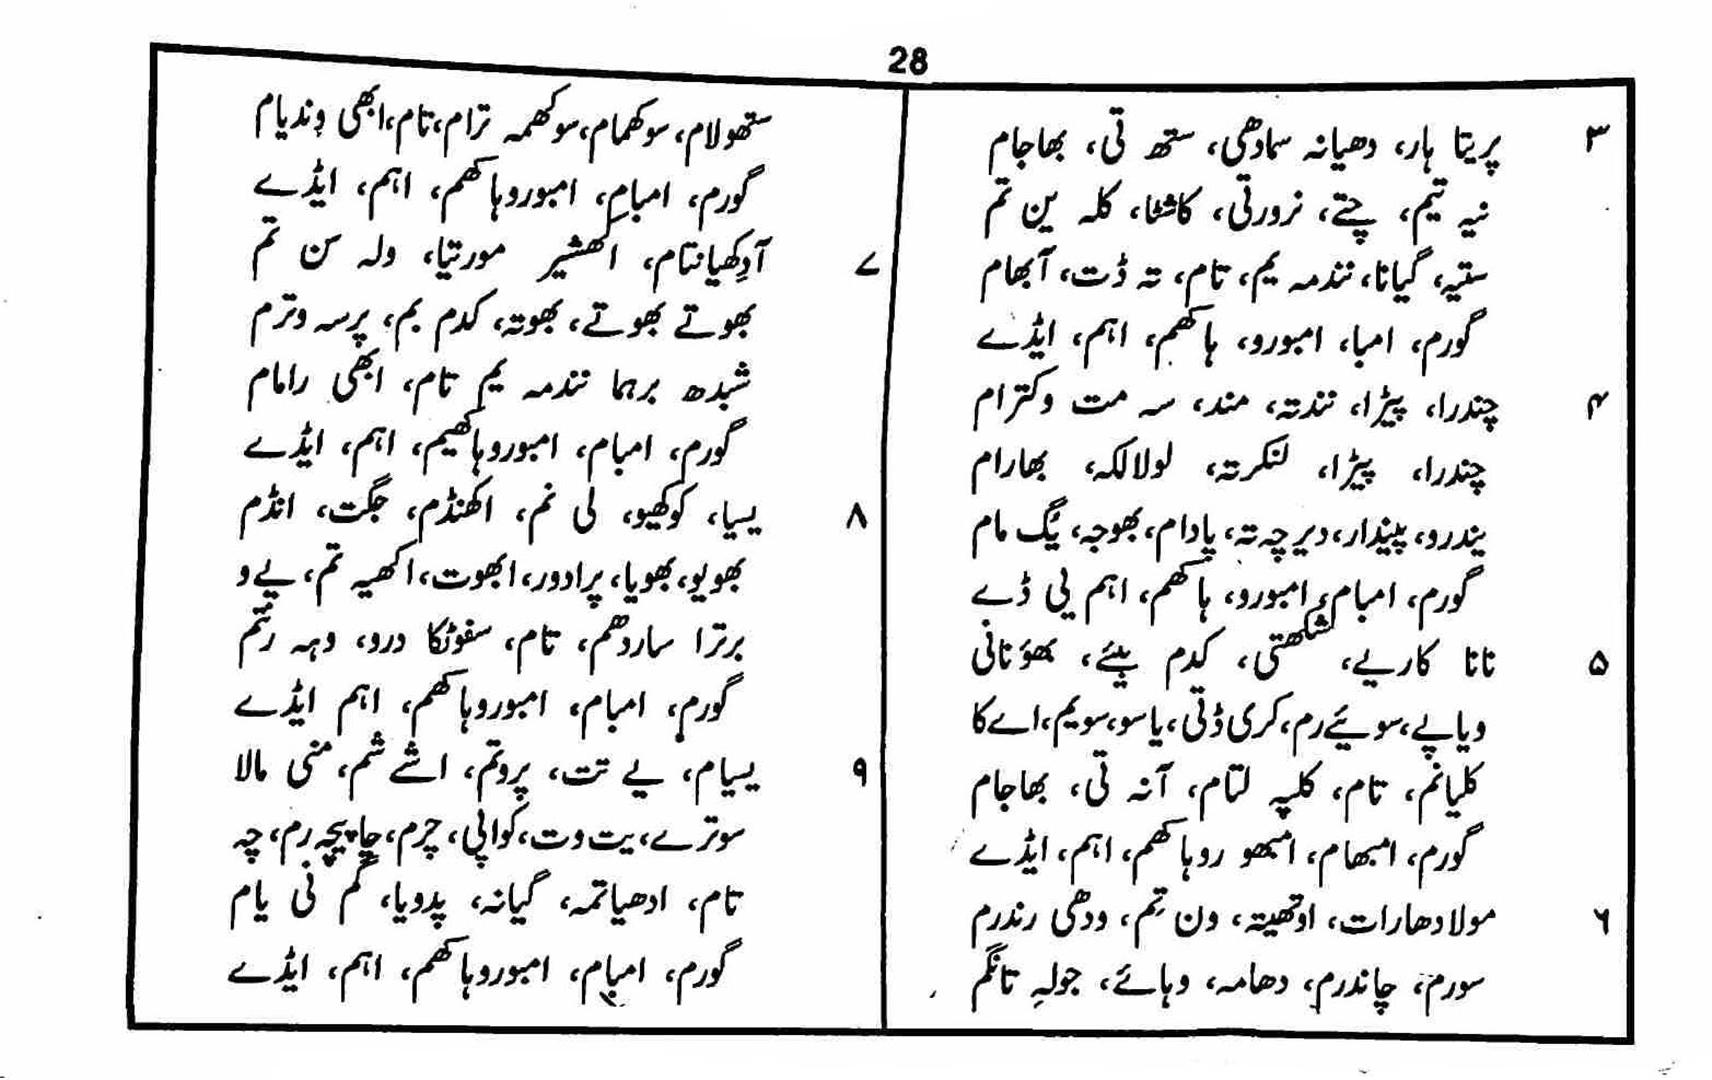 28
۳ پریتا ہار، دھیانہ سمادھی، ستھ تی، بھاجام
نیہ تیم، چتے، نرورتی، کاشٹا، کلہ ین تم
ستیہ، گیانا، نندمہ یم، تام، تہ ڈت، آبھام
گورم، امبا، امبورو، ہاکھم، اہم، ایڈے
۴ چندرا، پیڑا، نندتہ، مند، سہ مت وکترام
چندرا، پیڑا، لنکرتہ، لولالکہ، بھارام
یندرو، پیندار، دیرچہ تہ، پادام، بھوجہ، یگ مام
گورم، امبام، امبورو، ہاکھم، اہم یی ڈے
۵ نانا کاریے، شکھتی، کدم بیئے، بھؤنانی
ویاپے، سوئیے رم، کری ڈتی، یاسو، سویم، اے کا
کلیانم، تام، کلپہ لتام، آنہ تی، بھاجام
گورم، امبھام، امبھو روہاکھم، اہم، ایڈے
۶ مولادھارات، اوتھیتہ، ون تِم، ودھی رندرم
سورم، چاندرم، دھامہ، وہائے، جولہِ تانگم
ستھولام، سوکھمام، سوکھمہ ترام، تام، ابھی وندیام
گورم، امبام، امبوروہاکھم، اہم، ایڈے
۷ آدِکھیانتام، اکھشیر مورتیا، ولہ سن تم
بھوتے بھوتے، بھوتہ، کدم بم، پرسہ وترم
شبدھ برہما نندمہ یم تام، ابھی رامام
گورم، امبام، امبوروہاکھیم، اہم، ایڈے
۸ یسیا، کوکھیو، لی نم، اکھنڈم، جگت، انڈم
بھویو، بھویا، پرادور، ابھوت، اکھیہ تم، یے و
برترا ساردھم، تام، سفوٹکا درو، وہہ رنتم
گورم، امبام، امبوروہاکھم، اہم ایڈے
۹ یسیام، یے تت، پروتم، اشے شم، منی مالا
سوترے، یت وت، کواپی، چرم، چاپیچہ رم، چہ
تام، ادھیاتمہ، گیانہ، پدویا، گم نی یام
گورم، امبام، امبوروہاکھم، اہم، ایڈے